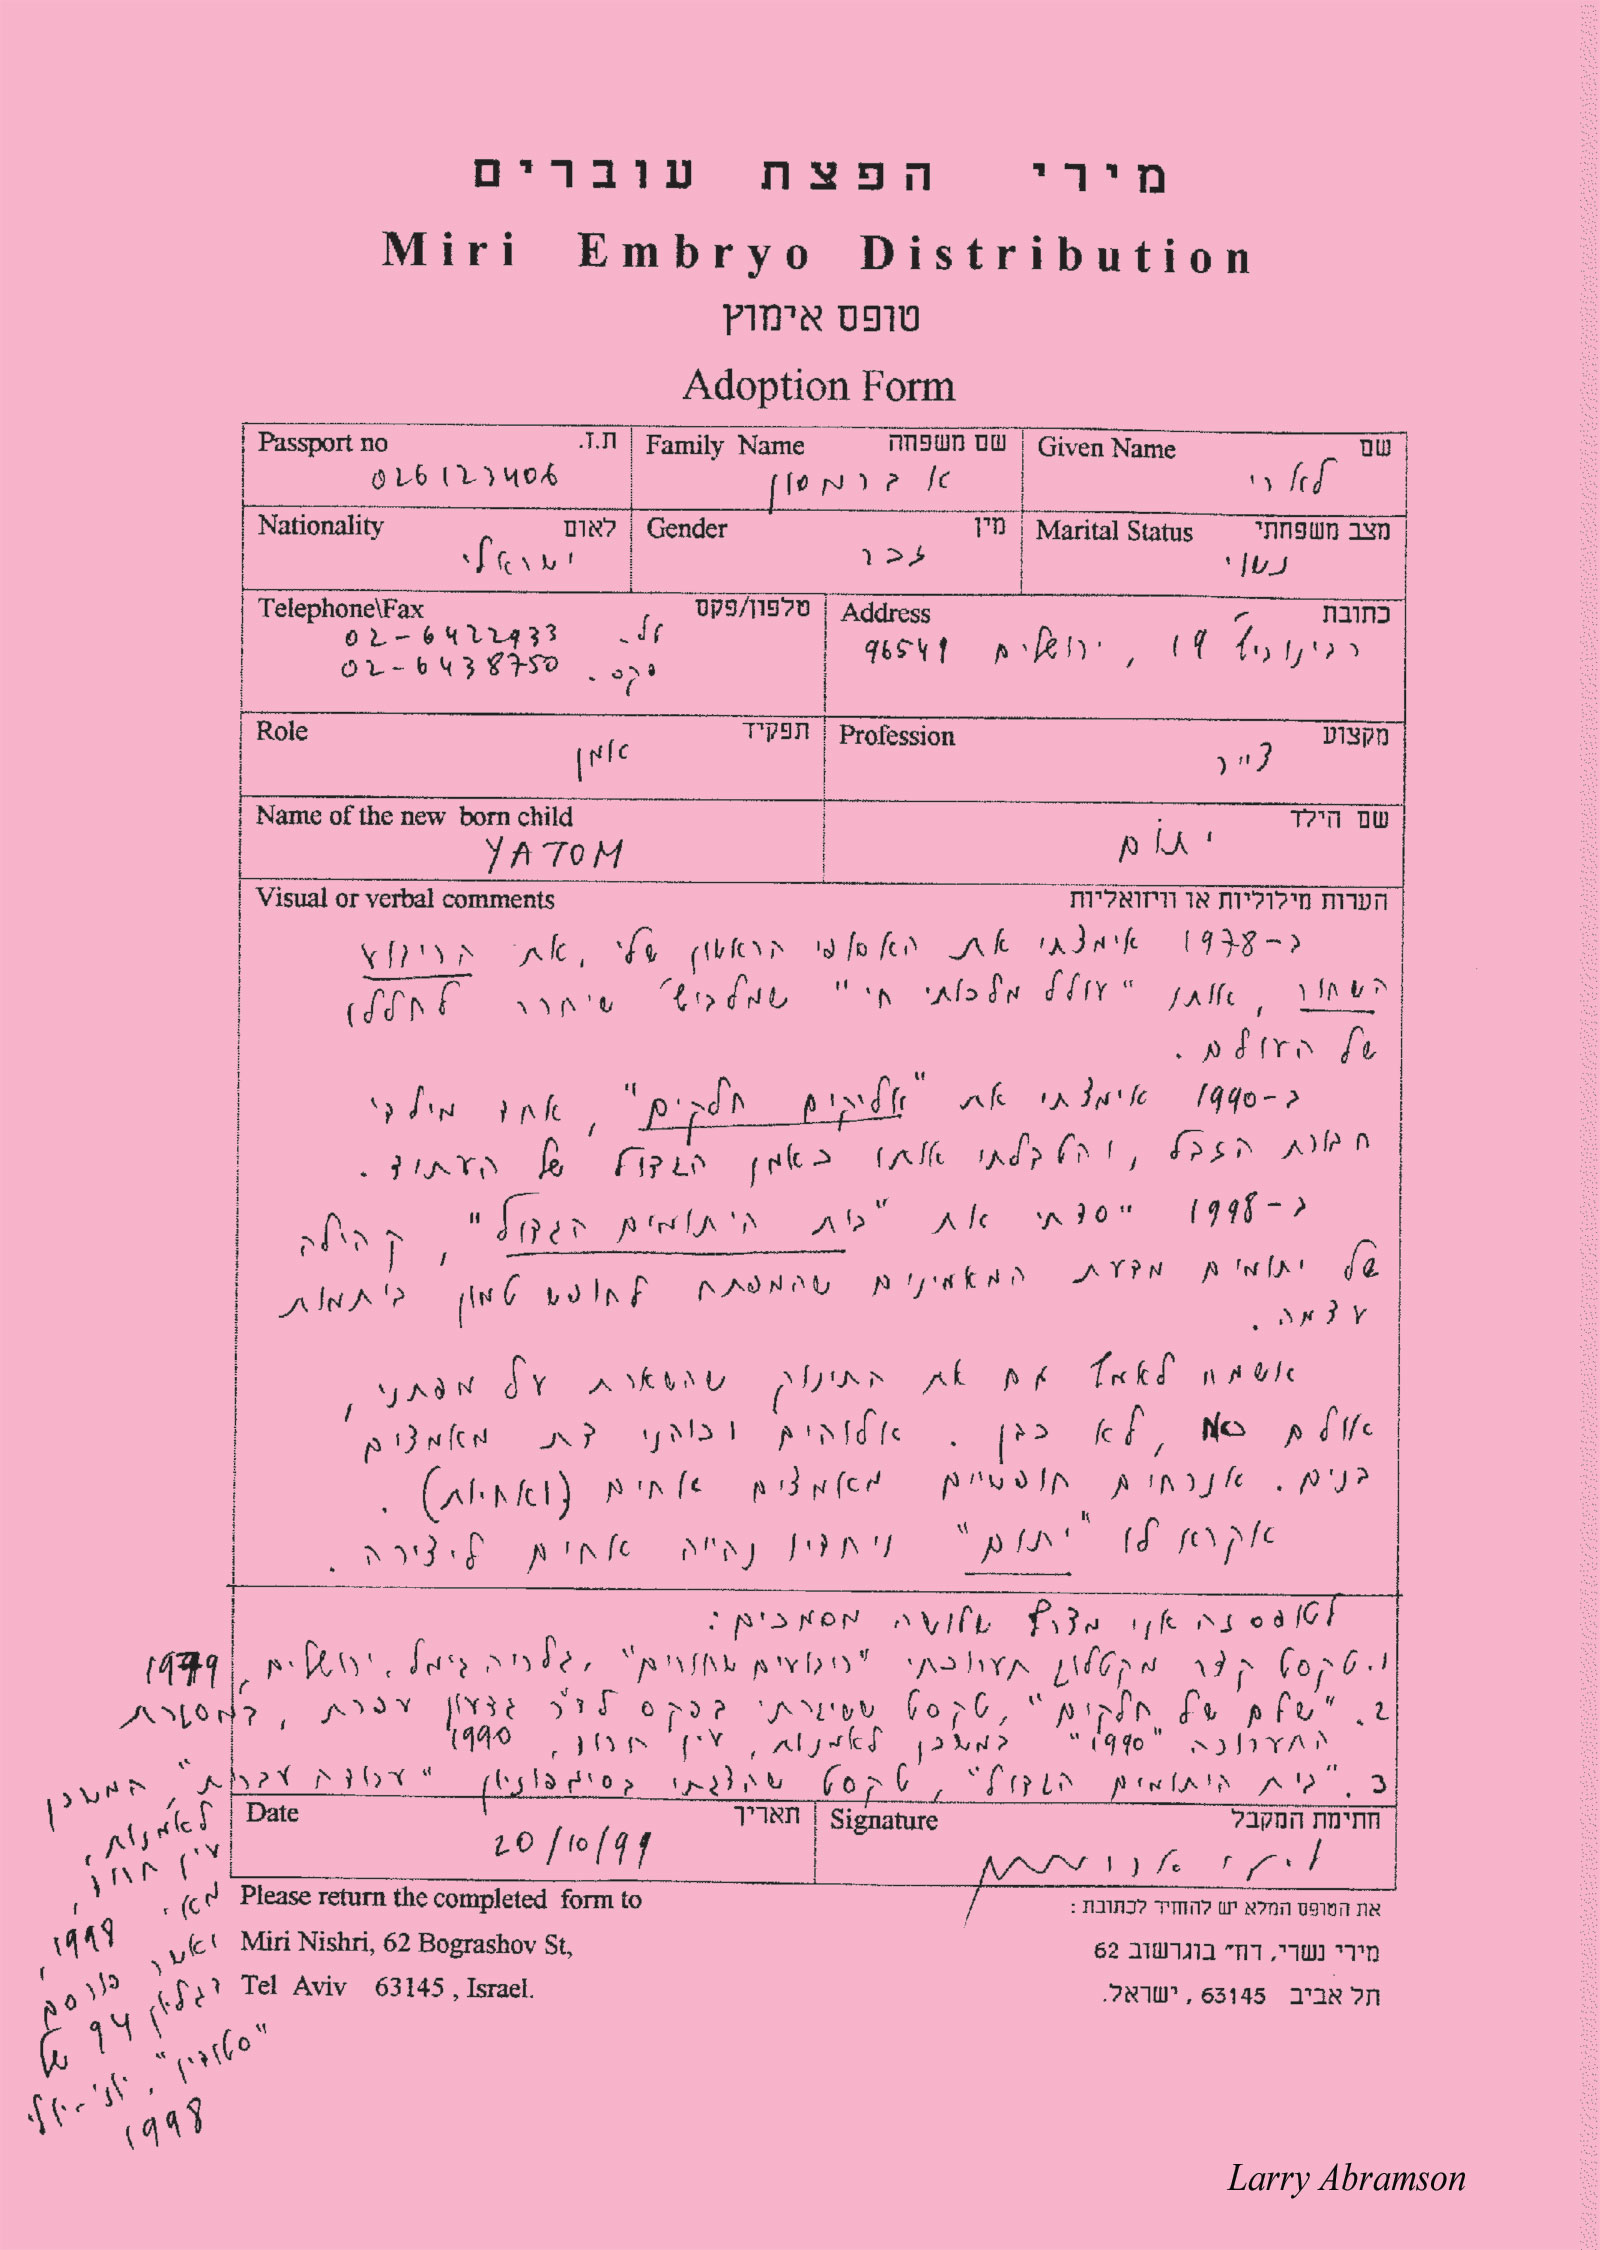 מירי הפצת עוברים
Miri Embryo Distribution
טופס אימוץ
Adoption Form
Passport no ת.ז. Family Name שם משפחה Given Name שם
026123406 אברמסון לארי
Nationality לאום Gender מין Marital Status מצב משפחתי
ישראלי זכר נשוי
Telephone\Fax טלפון/פקס Address כתובת
02-6422933 טל.
02-6438750 פקס.
רבינוביץ' 19, ירושלים 96549
Role תפקיד Profession מקצוע
אמן צייר
Name of the new born child שם הילד
YATOM יתום
Visual or verbal comments הערות מילוליות או וויזואליות
ב-1978 אימצתי את האסופי הראשון שלי, את הריבוע
השחור, אותו "עולל מלכותי חי" שמלביץ' שיחרר לחללו
של העולם.
ב-1990 אימצתי את "אליקים חלקים", אחד מילדי
חבורת הזבל, והטבלתי אותו כאמן הגדול של העתיד.
ב-1998 ייסדתי את "בית היתומים הגדול", קהילה
של יתומים מדעת המאמינים שהמפתח לחופש טמון ביתמות
עצמה.
אשמח לאמץ גם את התינוק שהשארת על מפתני,
אולם לא כבן. אלוהים וכוהני דת מאמצים
בנים. אזרחים חופשיים מאמצים אחים (ואחיות).
אקרא לו "יתום" ויחדיו נהייה אחים ליצירה.
לטופס זה אני מצרף שלושה מסמכים:
1. טקסט קצר מקטלוג תערוכתי "ריבועים שחורים", גלריה גימל, ירושלים, 1979
2. "שלם של חלקים", טקסט ששיגרתי בפקס לד"ר גדעון עפרת, במסגרת
התערוכה "1990" במשכן לאמנות, עין חרוד, 1990
3. "בית היתומים הגדול", טקסט שהצגתי בסימפוזיון "עבודה עברית", המשכן
לאמנות,
עין חרוד,
מאי 1998,
ואשר פורסם
בגליון 94 של
"סטודיו", יוני-יולי
1998
Date תאריך Signature חתימת המקבל
20/10/99
לארי אברמסון
Please return the completed form to את הטופס המלא יש להחזיר לכתובת:
Miri Nishri, 62 Bograshov St, מירי נשרי, רח' בוגרשוב 62
Tel Aviv 63145, Israel. תל אביב 63145, ישראל.
Larry Abramson